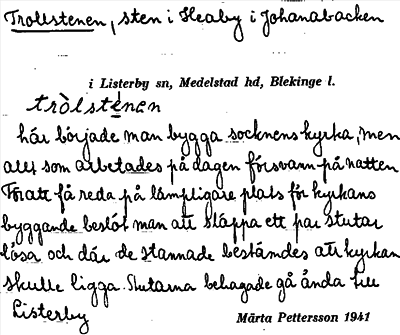 Trollstenen, sten i Heaby i Johanabacken
i Listerby sn, Medelstad hd, Blekinge l.
tròlstenen
här började man bygga socknens kyrka, men
allt som arbetades på dagen försvann på natten
För att få reda på lämpligare plats för kyrkans
byggande beslöt man att släppa ett par stutar
lösa och där de stannade bestämdes att kyrkan
skulle ligga. Stutarna behagade gå ända till
Listerby
Märta Pettersson 1941